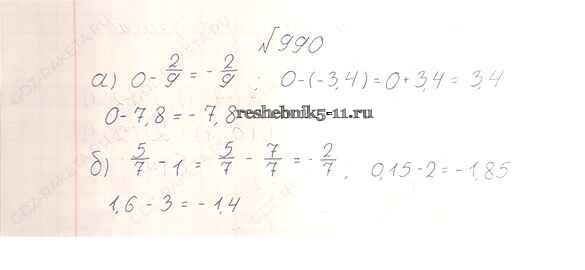 №990
а) 0 - 2/9 = - 2/9 ; 0 - (-3,4) = 0 + 3,4 = 3,4
0 - 7,8 = - 7,8
reshebnik5-11.ru
б) 5/7 - 1 = 5/7 - 7/7 = - 2/7 , 0,15 - 2 = - 1,85
1,6 - 3 = - 1,4